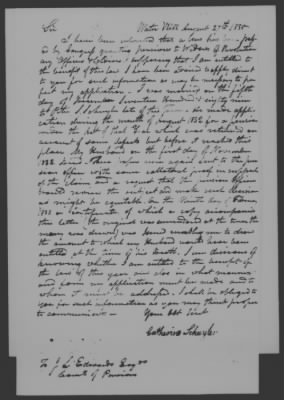 Sir
Water Vliet August 27th 1835
I have been informed that a law has been passed
by Congress granting pensions to Widows of Revolution
ary Officers & Soldiers & supposing that I am entitled to
the benefit of this law I have been advised to apply direct
to you for such information as may be necessary to per
fect my application. I was married on the fifth
day of seventeen hundred & eighty
to Peter S Schuyler late of this He made appli
cation during the month of August 1832 for a pension
under the Act of that Year which was returned on
account of some defects but before it reached this
place My Husband on the first day of November
1832 died. These papers were again sent to the pen
sion Office with some additional proof in support
of the claim and a request that the
would review the and make such
might be equitable. On the day of
1833 a Certificate of which a copy accompanies
this letter (the original was surrendered at the time the
money was drawn) was send enabling me to draw
the amount to which my Husband would have been
entitled at the time of his death. I am desirous of
knowing whether I am entitled to the benefit of
the law of this year and also in what manner
and form my application must be made and to
whom it must be addressed. I shall be obliged to
you for such information as you may think proper
to communicate.
Your Obt Servt
Catherine Schuyler
To J L Edwards Esqr
Comr of Pensions